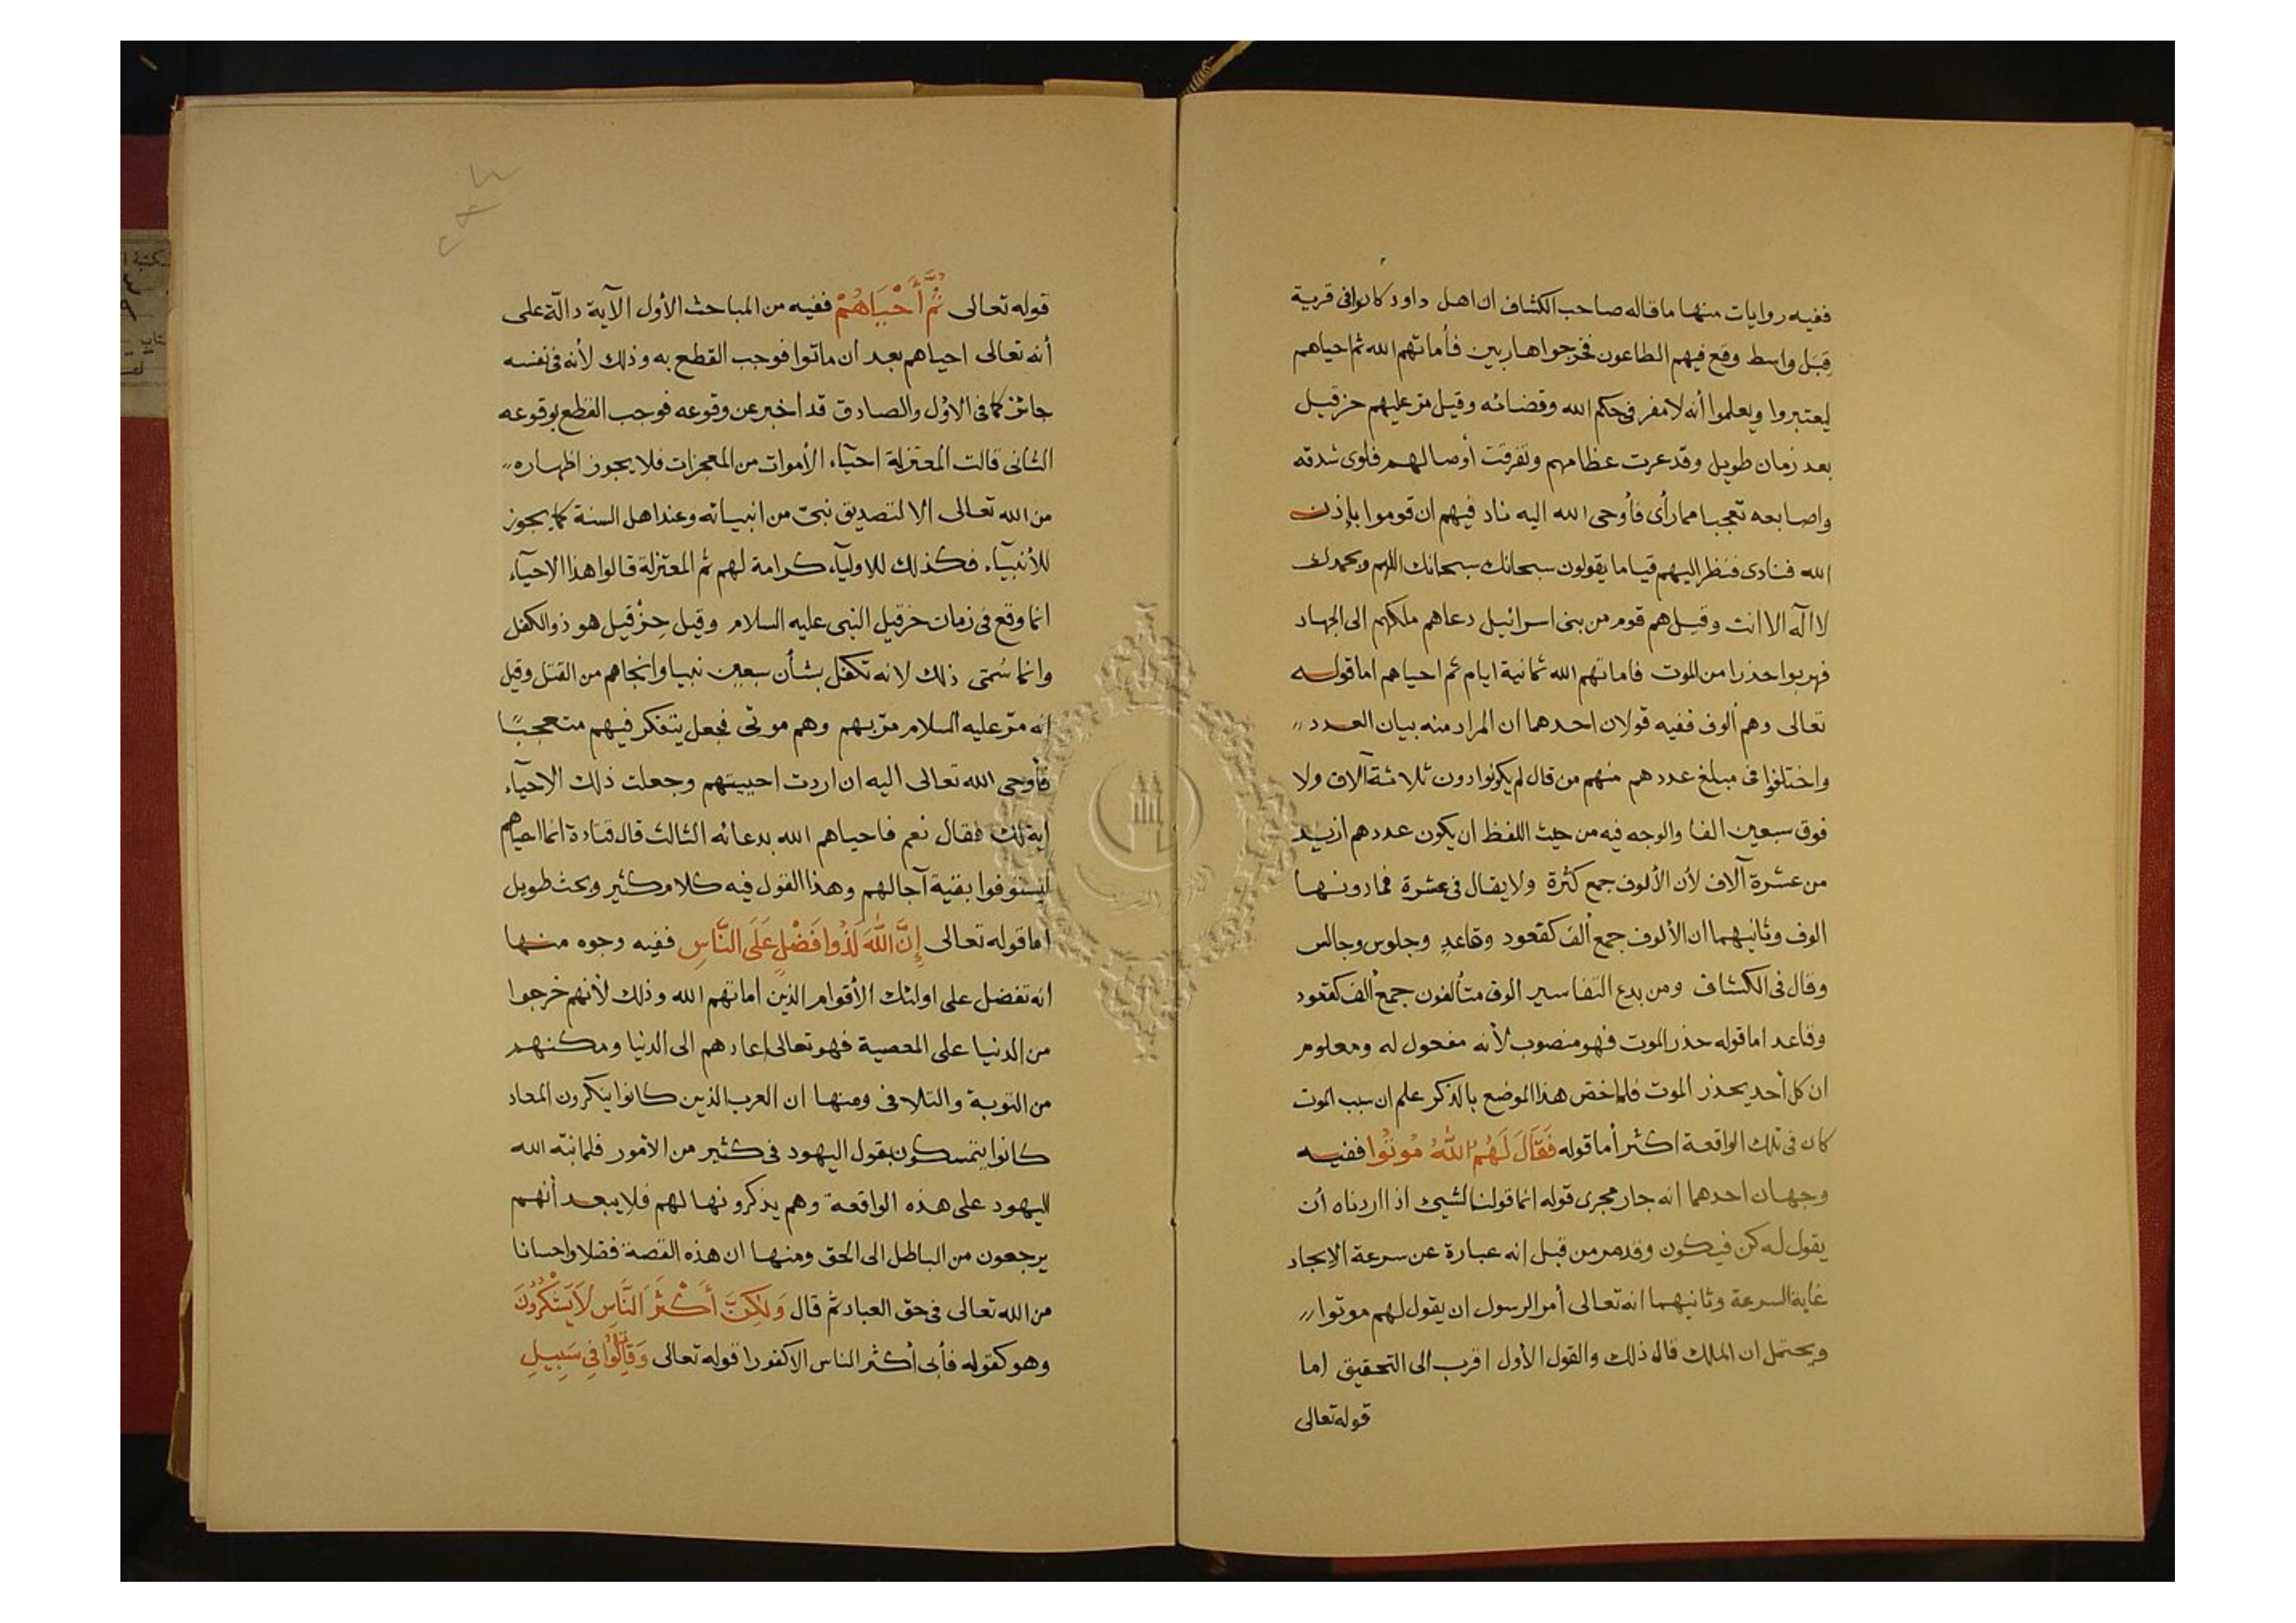 ففيه روايات منها ما قاله صاحب الكشاف ان اهل داورد كانوا في قرية
قبل واسط وقع فيهم الطاعون فخرجوا هاربين فأماتهم الله ثم احياهم
ليعتبروا ويعلموا أنه لا مفر في حكم الله وقضائه وقيل مر عليهم حزقيل
بعد زمان طويل وقد عرت عظامهم وتفرقت أوصالهم فلوى شدقه
واصابعه تعجبا مما رأى فأوحى الله اليه ناد فيهم ان قوموا بإذن
الله فنادى فنظر اليهم قياما يقولون سبحانك سبحانك اللهم وبحمدك
لا اله الا انت وقيل هم قوم من بنى اسرائيل دعاهم ملكهم الى الجهاد
فهربوا حذرا من الموت فاماتهم الله ثمانية ايام ثم احياهم اما قوله
تعالى وهم ألوف ففيه قولان احدهما ان المراد منه بيان العدد
واختلفوا في مبلغ عددهم منهم من قال لم يكونوا دون ثلاثة آلاف ولا
فوق سبعين الفا والوجه فيه من حيث اللفظ ان يكون عددهم ازيد
من عشرة آلاف لأن الألوف جمع كثرة ولا يقال في عشرة فما دونها
الوف وثانيهما ان الألوف جمع ألف كقعود وقاعد وجلوس وجالس
وقال في الكشاف ومن بدع التفاسير الوف متألفون جمع ألف كقعود
وقاعد اما قوله حذر الموت فهو منصوب لأنه مفعول له ومعلوم
ان كل أحد يحذر الموت فلما خص هذا الموضع بالذكر علم ان سبب الموت
كان في تلك الواقعة اكثر أما قوله فَقَالَ لَهُمُ اللّٰهُ مُوتُوا ففيه
وجهان احدهما انه جار مجرى قوله انما قولنا لشيئ اذا اردناه أن
يقول له كن فيكون وقد مر من قبل انه عبارة عن سرعة الايجاد
غاية السرعة وثانيهما انه تعالى أمر الرسول ان يقول لهم موتوا
ويحتمل ان الملك قال ذلك والقول الأول اقرب الى التحقيق اما
قوله تعالى
قوله تعالى ثُمَّ أَحْيَاهُمْ ففيه من المباحث الأول الآية دالّة على
أنه تعالى احياهم بعد ان ماتوا فوجب القطع به وذلك لأنه في نفسه
جائز كما في الاوّل والصادق قد اخبر عن وقوعه فوجب القطع بوقوعه
الثانى قالت المعتزلة احيآء الأموات من المعجزات فلا يجوز اظهاره
من الله تعالى الا لتصديق نبىّ من انبيائه وعند اهل السنة كما يجوز
للأنبيآء فكذلك للاوليآء كرامة لهم ثم المعتزلة قالوا هذا الاحيآء
انما وقع في زمان حزقيل النبى عليه السلام وقيل حِزْقيل هو ذو الكفل
وانما سُمّى ذلك لانه تكفل بشأن سبعين نبيا وانجاهم من القتل وقيل
انه مرّ عليه السلام مرّ بهم وهم موتى فجعل يتفكر فيهم متعجبًا
فأوحى الله تعالى اليه ان اردت احييتهم وجعلت ذلك الاحيآء
اية لك فقال نعم فاحياهم الله بدعائه الثالث قال قتادة انما احياهم
ليستوفوا بقية آجالهم وهذا القول فيه كلام كثير وبحث طويل
اما قوله تعالى إِنَّ اللّٰهَ لَذُوا فَضْلٍ عَلَى النَّاسِ ففيه وجوه منها
انه تفضل على اولئك الأقوام الذين اماتهم الله وذلك لأنهم خرجوا
من الدنيا على المعصية فهو تعالى اعادهم الى الدنيا ومكنهم
من التوبة والتلافى ومنها ان العرب الذين كانوا ينكرون المعاد
كانوا يتمسكون بقول اليهود في كثير من الأمور فلما نبّه الله
اليهود على هذه الواقعة وهم يذكرونها لهم فلا يبعد أنهم
يرجعون من الباطل الى الحق ومنها ان هذه القصة فضلا واحسانا
من الله تعالى في حق العباد ثمّ قال وَلٰكِنَّ أَكْثَرَ النَّاسِ لَا يَشْكُرُونَ
وهو كقوله فأبى أكثر الناس الا كفورا قوله تعالى وَقَاتِلُوا فِي سَبِيلِ